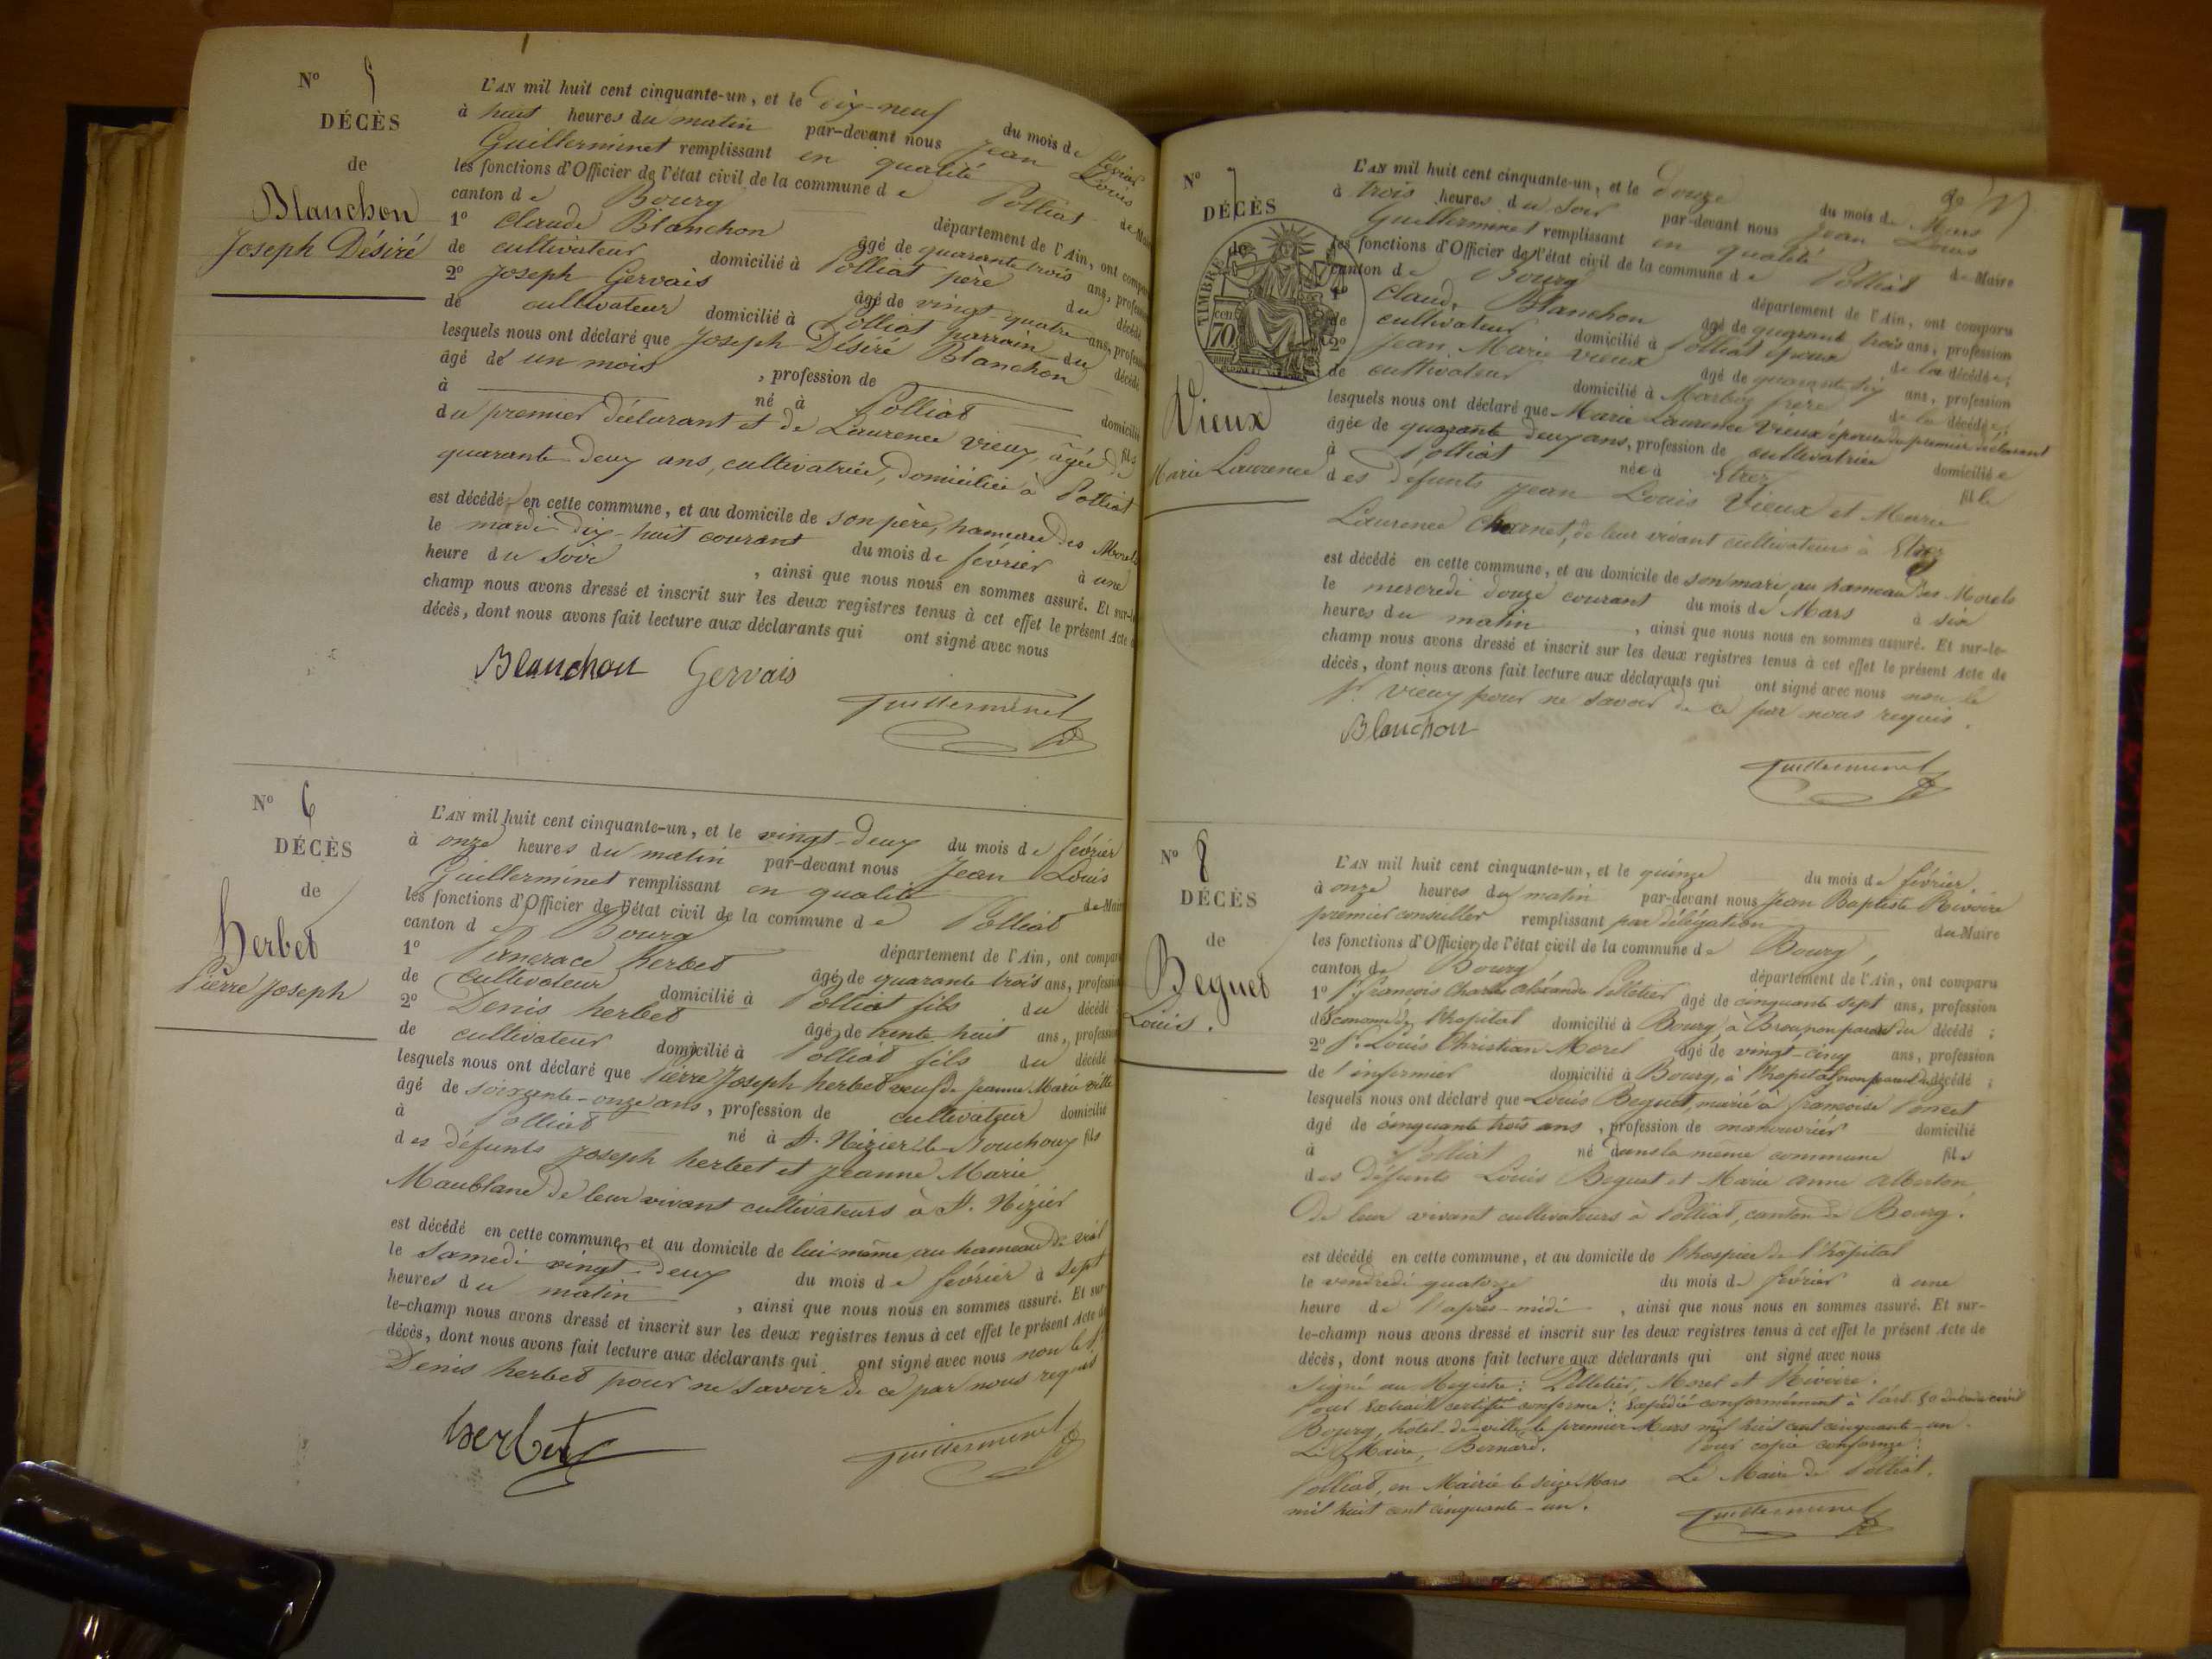 N° 5
DÉCÈS
de
Blanchon
Joseph Désiré
L'AN mil huit cent cinquante-un, et le dix-neuf du mois de février
à huit heures du matin par-devant nous Jean Louis
Guillerminet remplissant en qualité de Maire
les fonctions d'Officier de l'état civil de la commune de Polliat
canton de Bourg département de l'Ain, ont comparu
1° Claude Blanchon âgé de quarante trois ans, profession
de cultivateur domicilié à Polliat père du décédé
2° Joseph Gervais âgé de vingt-quatre ans, profession
de cultivateur domicilié à Polliat parrain du décédé
lesquels nous ont déclaré que Joseph Désiré Blanchon
âgé de un mois, profession de domicilié
à né à Polliat fils
du premier déclarant et de Laurence vieux, âgée de
quarante deux ans, cultivatrice, domiciliée à Polliat
est décédé en cette commune, et au domicile de son père, hameau des Morels
le mardi dix-huit courant du mois de février à une
heure du soir, ainsi que nous nous en sommes assuré. Et sur-le-
champ nous avons dressé et inscrit sur les deux registres tenus à cet effet le présent Acte de
décès, dont nous avons fait lecture aux déclarants qui ont signé avec nous
Blanchon Gervais
Guillerminet
N° 6
DÉCÈS
de
herbet
Pierre Joseph
L'AN mil huit cent cinquante-un, et le vingt-deux du mois de février
à onze heures du matin par-devant nous Jean Louis
Guillerminet remplissant en qualité de Maire
les fonctions d'Officier de l'état civil de la commune de Polliat
canton de Bourg département de l'Ain, ont comparu
1° herbet âgé de quarante trois ans, profession
de cultivateur domicilié à Polliat fils du décédé
2° Denis herbet âgé de trente huit ans, profession
de cultivateur domicilié à Polliat fils du décédé
lesquels nous ont déclaré que Pierre Joseph herbet veuf de Jeanne Marie
âgé de soixante-onze ans, profession de cultivateur domicilié
à Polliat né à St. Nizier le Bouchoux fils
des défunts Joseph herbet et Jeanne Marie
Maublanc de leur vivant cultivateurs à St. Nizier
est décédé en cette commune, et au domicile de lui-même au hameau de
le samedi vingt-deux du mois de février à sept
heures du matin, ainsi que nous nous en sommes assuré. Et sur-
le-champ nous avons dressé et inscrit sur les deux registres tenus à cet effet le présent Acte de
décès, dont nous avons fait lecture aux déclarants qui ont signé avec nous non le Sr.
Denis herbet pour ne savoir de ce par nous requis
herbet
Guillerminet
N° 7
DÉCÈS
de
TIMBRE
cen
70
Vieux
Marie Laurence
L'AN mil huit cent cinquante-un, et le douze du mois de Mars
à trois heures du soir par-devant nous Jean Louis
Guillerminet remplissant en qualité de Maire
les fonctions d'Officier de l'état civil de la commune de Polliat
canton de Bourg département de l'Ain, ont comparu
1° Claude Blanchon âgé de quarante trois ans, profession
de cultivateur domicilié à Polliat époux de la décédée;
2° Jean Marie vieux âgé de quarante six ans, profession
de cultivateur domicilié à Marboz frère de la décédée;
lesquels nous ont déclaré que Marie Laurence Vieux épouse du premier déclarant
âgée de quarante deux ans, profession de cultivatrice domiciliée
à Polliat née à Etrez fille
des défunts Jean Louis Vieux et Marie
Laurence Charnet, de leur vivant cultivateurs à Etrez
est décédé en cette commune, et au domicile de son mari, au hameau des Morels
le mercredi douze courant du mois de Mars à six
heures du matin, ainsi que nous nous en sommes assuré. Et sur-le-
champ nous avons dressé et inscrit sur les deux registres tenus à cet effet le présent Acte de
décès, dont nous avons fait lecture aux déclarants qui ont signé avec nous non le
Sr. vieux pour ne savoir de ce par nous requis.
Blanchon
Guillerminet
N° 8
DÉCÈS
de
Beguet
Louis.
L'AN mil huit cent cinquante-un, et le quinze du mois de février.
à onze heures du matin par-devant nous Jean Baptiste Rivoire
premier conseiller remplissant par délégation du Maire
les fonctions d'Officier de l'état civil de la commune de Bourg,
canton de Bourg département de l'Ain, ont comparu
1° Sr. françois Charles alexandre Pelletier âgé de cinquante sept ans, profession
d'économe de l'hopital domicilié à Bourg, à Brou, non parent du décédé;
2° Sr. Louis Christian Morel âgé de vingt-cinq ans, profession
de infirmier domicilié à Bourg, à l'hopital, non parent du décédé;
lesquels nous ont déclaré que Louis Beguet, marié à françoise Poncet
âgé de cinquante trois ans, profession de manouvrier domicilié
à Polliat né dans la même commune fils
des défunts Louis Beguet et Marie anne alberton
de leur vivant cultivateurs à Polliat, canton de Bourg.
est décédé en cette commune, et au domicile de l'hospice de l'hôpital
le vendredi quatorze du mois de février à une
heure de l'après-midi, ainsi que nous nous en sommes assuré. Et sur-
le-champ nous avons dressé et inscrit sur les deux registres tenus à cet effet le présent Acte de
décès, dont nous avons fait lecture aux déclarants qui ont signé avec nous
signé au Registre: Pelletier, Morel et Rivoire.
Pour Extrait certifié conforme: Expédié conformément à l'art. 80 du code civil
Bourg, hôtel-de-ville, le premier Mars mil huit cent cinquante-un.
Le Maire, Bernard. Pour copie conforme:
Polliat, en Mairie le seize Mars Le Maire de Polliat.
mil huit cent cinquante-un.
Guillerminet